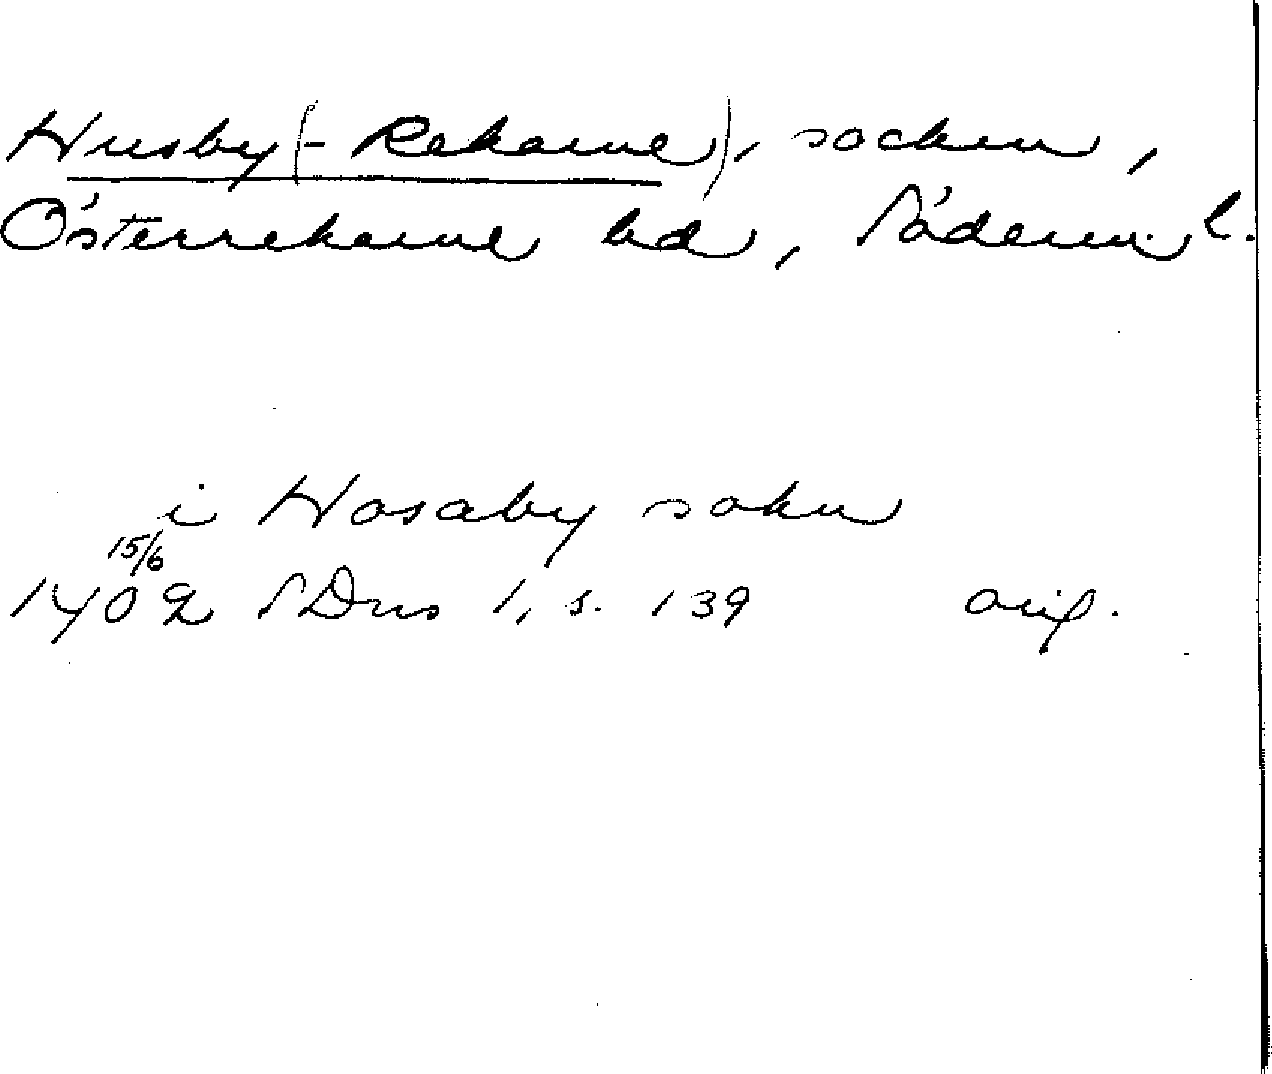 Husby(-Rekarne), socken,
Österrekarne hd, Söderm. l.
i Hosaby sokn
15/6
1402 SDns 1, s. 139 orig.